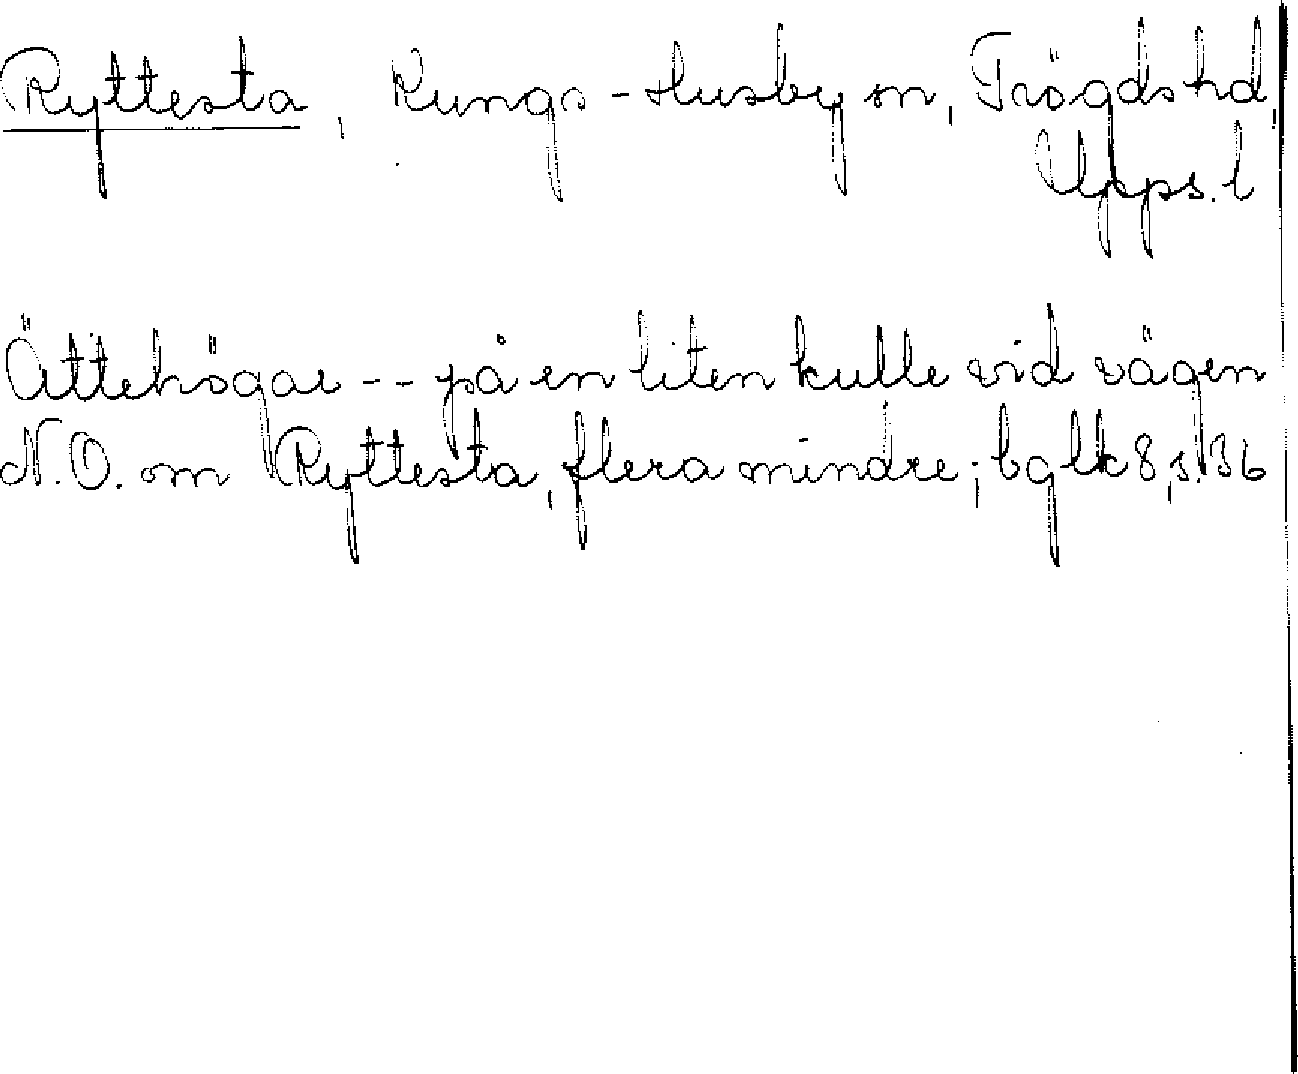 Ryttesta, Kungs-Husby sn, Trögds hd,
Upps. l
Ättehögar -- på en liten kulle vid vägen
N.O. om Ryttesta, flera mindre; bglk 8, s. 36